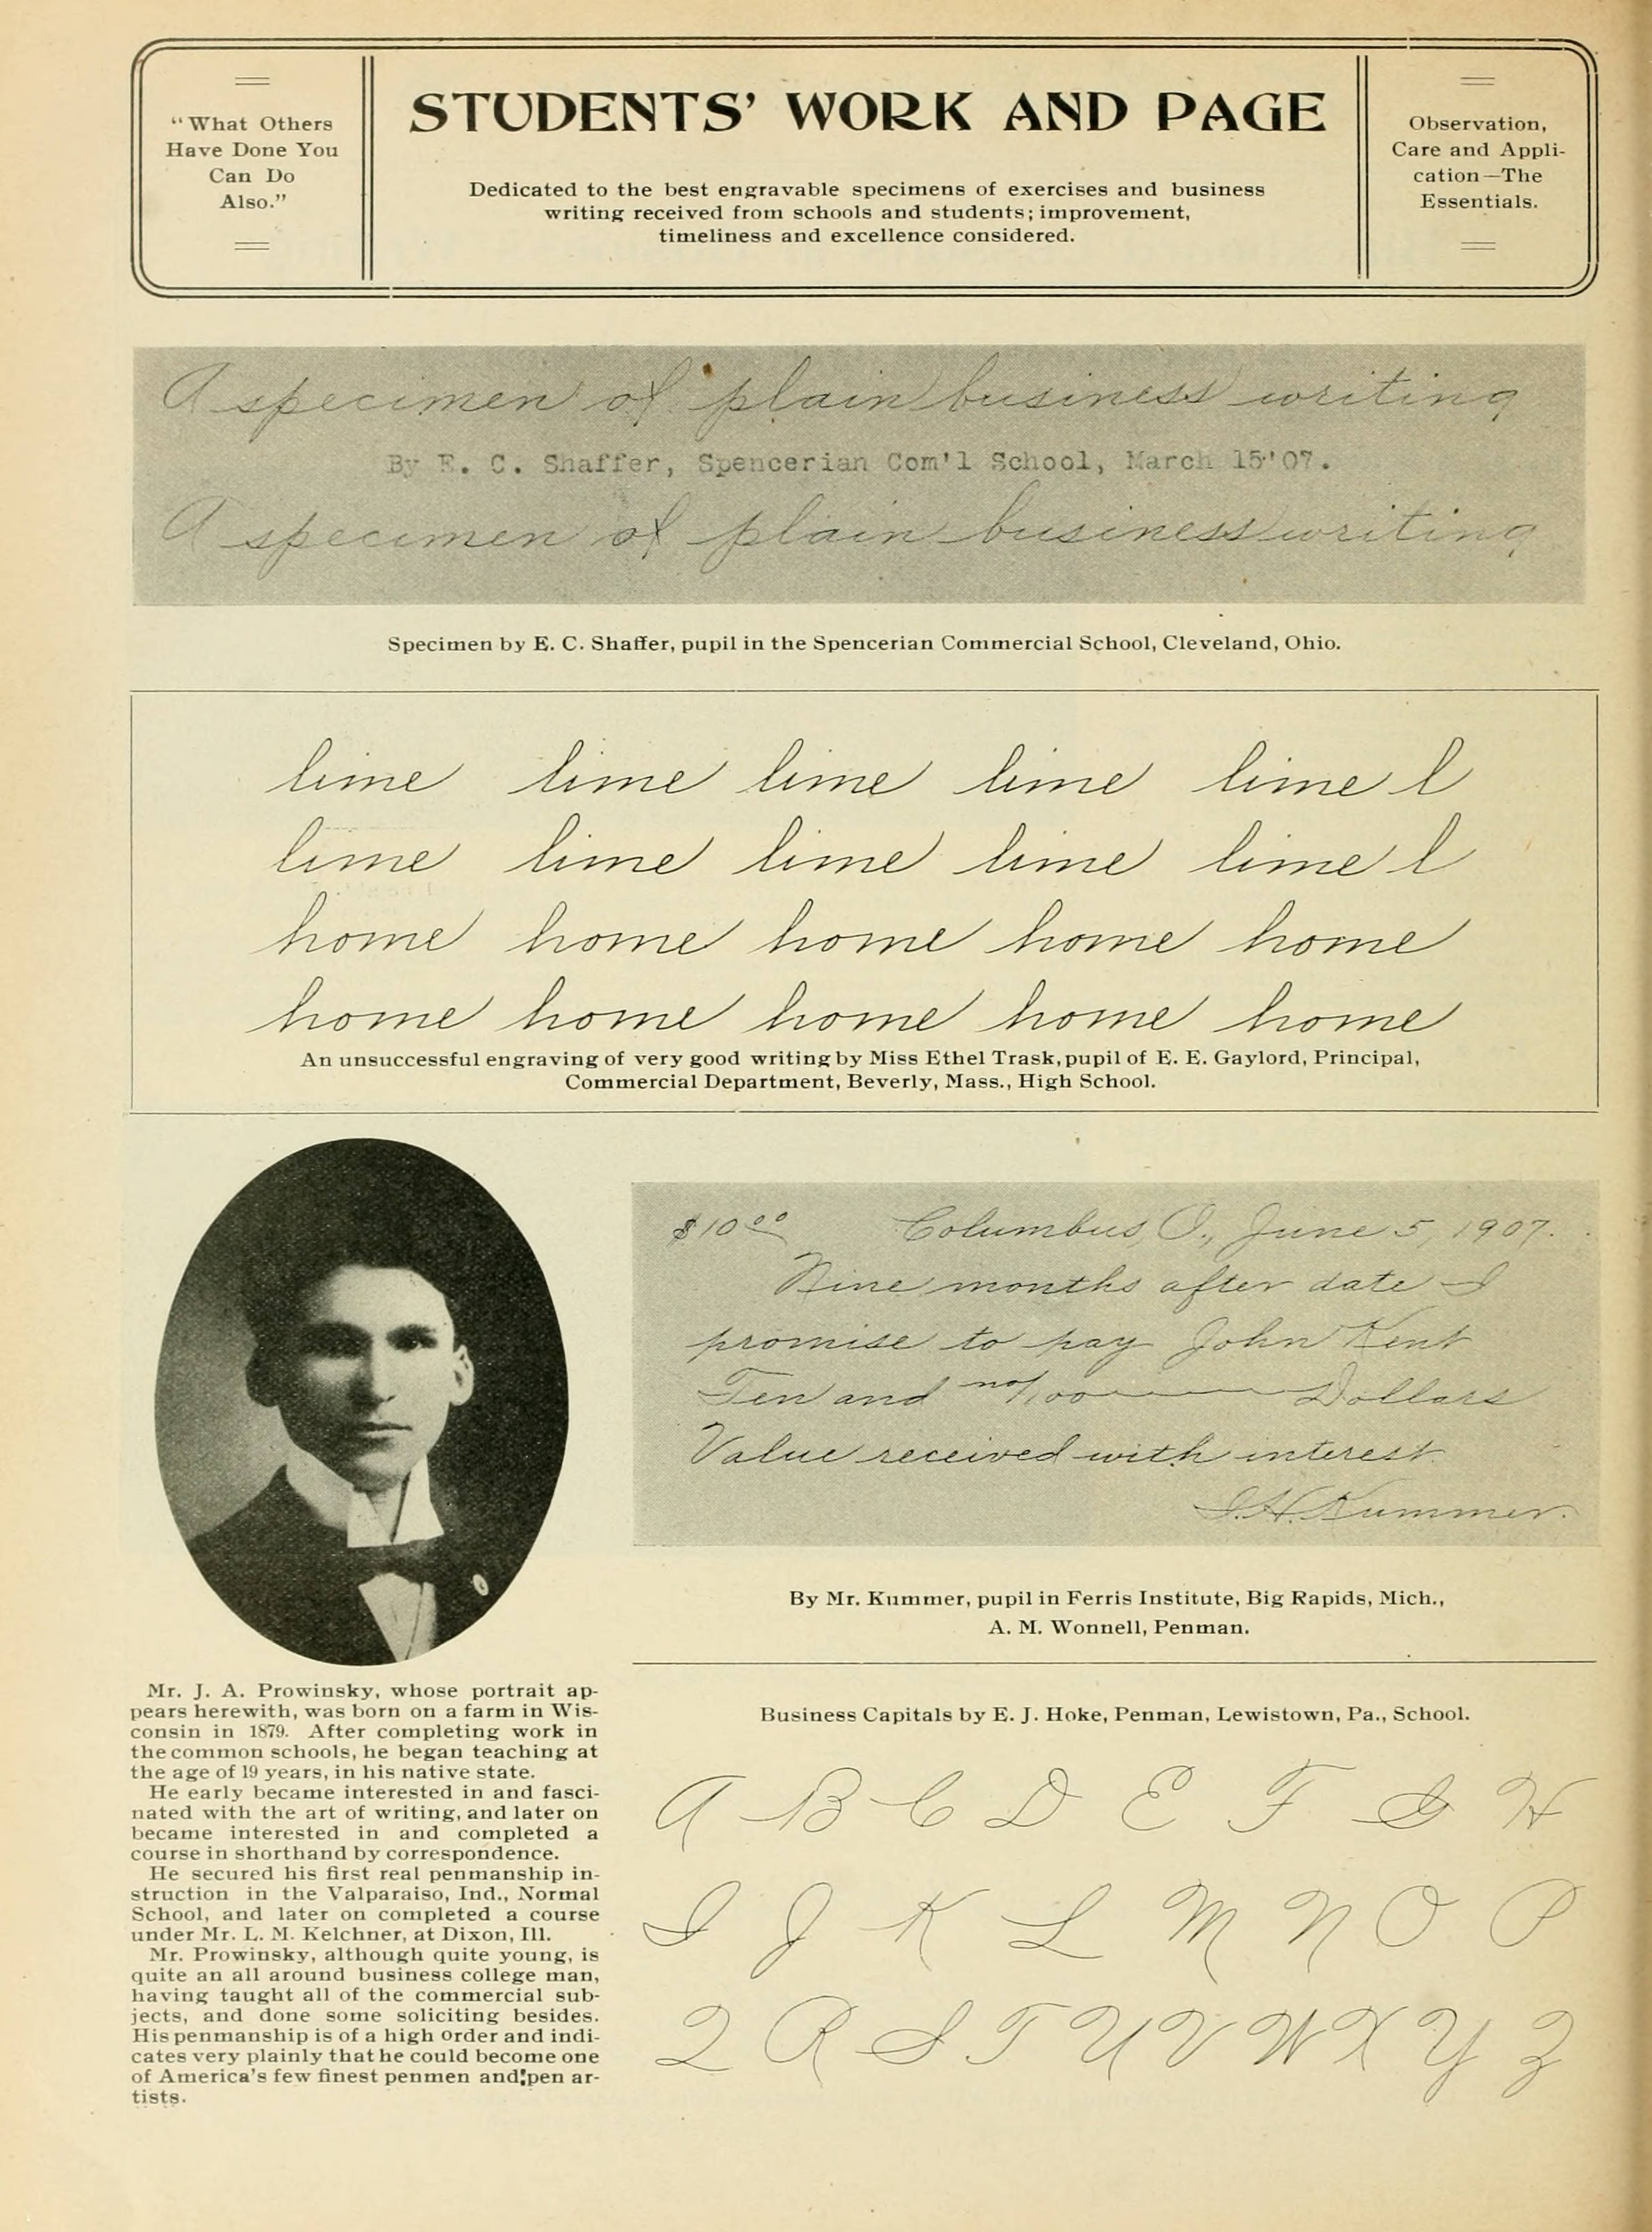 "What Others
Have Done You
Can Do
Also."
STUDENTS' WORK AND PAGE
Dedicated to the best engravable specimens of exercises and business
writing received from schools and students; improvement,
timeliness and excellence considered.
Observation,
Care and Appli-
cation—The
Essentials.
A specimen of plain business writing
By E. C. Shaffer, Spencerian Com'l School, March 15'07.
A specimen of plain business writing
Specimen by E. C. Shaffer, pupil in the Spencerian Commercial School, Cleveland, Ohio.
lime lime lime lime lime l
lime lime lime lime lime l
home home home home home
home home home home home
An unsuccessful engraving of very good writing by Miss Ethel Trask, pupil of E. E. Gaylord, Principal,
Commercial Department, Beverly, Mass., High School.
$10 00 Columbus, O., June 5, 1907.
Nine months after date I
promise to pay John Kent
Ten and no/100 Dollars
Value received with interest.
I. H. Kummer.
By Mr. Kummer, pupil in Ferris Institute, Big Rapids, Mich.,
A. M. Wonnell, Penman.
Mr. J. A. Prowinsky, whose portrait ap-
pears herewith, was born on a farm in Wis-
consin in 1879. After completing work in
the common schools, he began teaching at
the age of 19 years, in his native state.
He early became interested in and fasci-
nated with the art of writing, and later on
became interested in and completed a
course in shorthand by correspondence.
He secured his first real penmanship in-
struction in the Valparaiso, Ind., Normal
School, and later on completed a course
under Mr. L. M. Kelchner, at Dixon, Ill.
Mr. Prowinsky, although quite young, is
quite an all around business college man,
having taught all of the commercial sub-
jects, and done some soliciting besides.
His penmanship is of a high order and indi-
cates very plainly that he could become one
of America's few finest penmen and pen ar-
tists.
Business Capitals by E. J. Hoke, Penman, Lewistown, Pa., School.
A B C D E F G H
I J K L M N O P
Q R S T U V W X Y Z